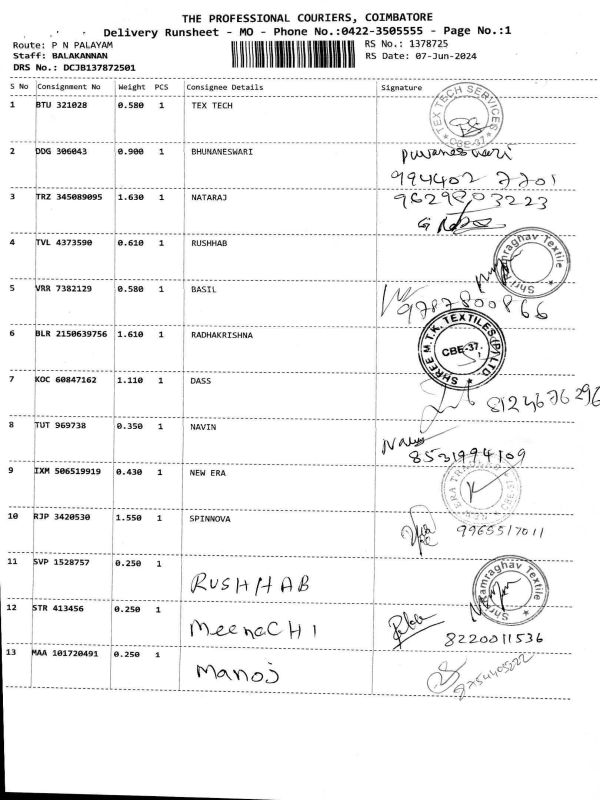 THE PROFESSIONAL COURIERS, COIMBATORE
Delivery Runsheet - MO - Phone No.:0422-3505555 - Page No.:1
Route: P N PALAYAM RS No.: 1378725
Staff: BALAKANNAN RS Date: 07-Jun-2024
DRS No.: DCJB137872501
S No Consignment No Weight PCS Consignee Details Signature
1 BTU 321028 0.580 1 TEX TECH
TEX TECH SERVICES CBE-37
2 DDG 306043 0.900 1 BHUNANESWARI
994402 7701
3 TRZ 345089095 1.630 1 NATARAJ 9629803223
4 TVL 4373590 0.610 1 RUSHHAB
Shri Ramraghav Textile
5 VRR 7382129 0.580 1 BASIL
9787800866
6 BLR 2150639756 1.610 1 RADHAKRISHNA
SHREE M.T.K. TEXTILES (P) LTD. CBE-37.
7 KOC 60847162 1.110 1 DASS
8124676296
8 TUT 969738 0.350 1 NAVIN
8531994109
9 IXM 506519919 0.430 1 NEW ERA
10 RJP 3420530 1.550 1 SPINNOVA
9965517011
11 SVP 1528757 0.250 1 RUSHHAB
Shri Ramraghav Textile
12 STR 413456 0.250 1 MeenaCHI
8220011536
13 MAA 101720491 0.250 1 Manoj